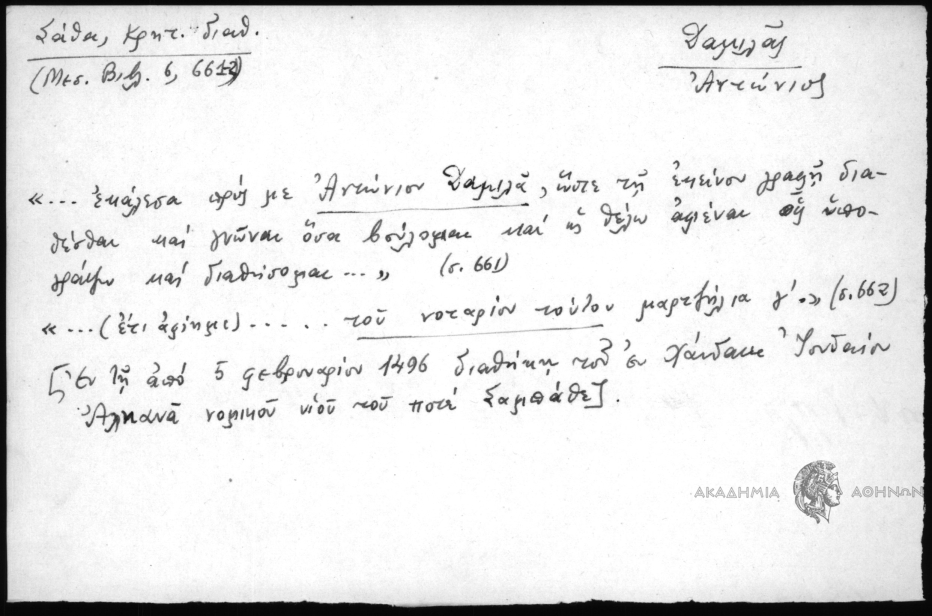 Σάθα, Κρητ. διαθ.
(Μεσ. Βιβλ. 6, 661)
Δαμιλᾶς
Ἀντώνιος
«... ἐκάλεσα πρός με Ἀντώνιον Δαμιλᾶ, ὥστε τῇ ἐκείνου γραφῇ δια-
θέσθαι καὶ γνῶναι ὅσα βούλομαι καὶ ὡς θέλω ἀφιέναι οἷς ὑπο-
γράψω καὶ διαθήσομαι ... » (σ. 661)
« ... (ἔτι ἀφίημι) ..... τοῦ νοταρίου τούτου μαρτζέλια γ΄.» (σ. 662)
[Ἐν τῇ ἀπό 5 φεβρουαρίου 1496 διαθήκῃ τοῦ ἐν Χάνδακι Ἰουδαίου
Ἀλκανᾶ νομικοῦ υἱοῦ τοῦ ποτέ Σαμπάθε].
ΑΚΑΔΗΜΙΑ ΑΘΗΝΩΝ